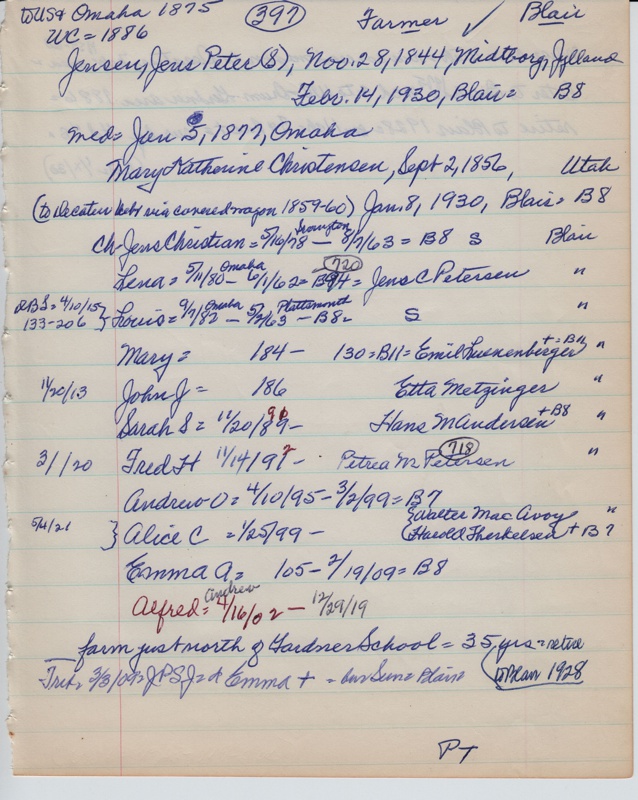 to US & Omaha 1875 397 Farmer ✓ Blair
UC = 1886
Jensen, Jens Peter (S), Nov. 28, 1844, Midtborg, Jylland
Febr. 14, 1930, Blair = B8
Med = Jan 5, 1877, Omaha
Mary Katherine Christensen, Sept 2, 1856, Utah
(to Decatur Nebr via covered wagon 1859-60) Jan. 8, 1930, Blair = B8
Ch - Jens Christian = 5/16/78 - 8/7/63 = B8 S Blair
Lena = 5/11/80 Omaha - 6/1/62 = 720 = Jens C. Petersen "
RBS = 4/10/15 133-206 } Louis = 9/7/82 Omaha - 5/2/63 Plattsmouth - B8 = S "
Mary = 184 - 130 = B11 = Emil + = B11 "
11/20/13 John J = 186 Etta Metzinger "
Sarah S = 11/20/89 90 - Hans M Andersen + B8 "
3/1/20 Fred H 11/14/91 2 - Petrea M. Petersen 718 "
Andrew O = 4/10/95 - 3/2/99 = B7
5/4/21 } Alice C = 1/25/99 - { Walter Mac Avoy "
{ Harold Therkelsen + B7
Emma A = 105 - 2/19/09 = B8
Alfred = Andrew 4/16/02 - 12/29/19
farm just north of Gardner School = 35 yrs = retire
Trib = 3/3/09 = J.P.S J = d Emma + = bur Sun = Blair to Blair 1928
PT